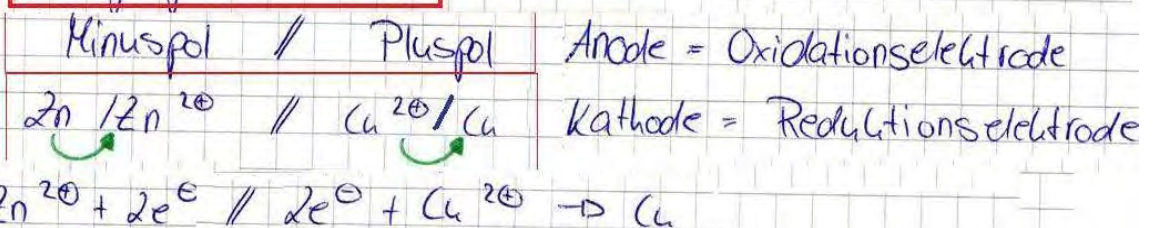 Minuspol // Pluspol Anode = Oxidationselektrode
Zn /Zn²⊕ // Cu²⊕/Cu Kathode = Reduktionselektrode
Zn²⊕ + 2e⊖ // 2e⊖ + Cu²⊕ → Cu